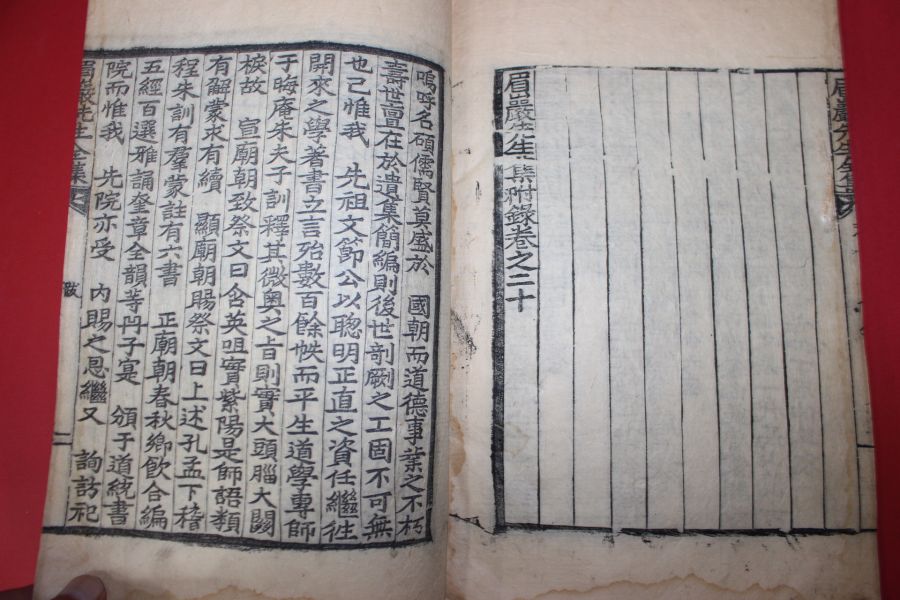 眉巖先生集附錄卷之二十
嗚呼名碩儒賢莫盛於　國朝而道德事業之不朽
壽世亶在於遺集簡編則後世剞劂之工固不可無
也已惟我　先祖文節公以聰明正直之資任繼往
開來之學著書立言殆數百餘帙而平生道學專師
于晦庵朱夫子訓釋其微奧之旨則實大頭腦大關
棙故　宣廟朝致祭文曰含英咀實紫陽是師語類
有解蒙求有續　顯廟朝賜祭文曰上述孔孟下稽
程朱訓有羣蒙註有六書　正廟朝春秋鄕飮合編
五經百選雅誦奎章全韻等冊子寔　頒于道統書
院而惟我　先院亦受　內賜之恩繼又　詢訪祀
眉巖先生全集
跋
一